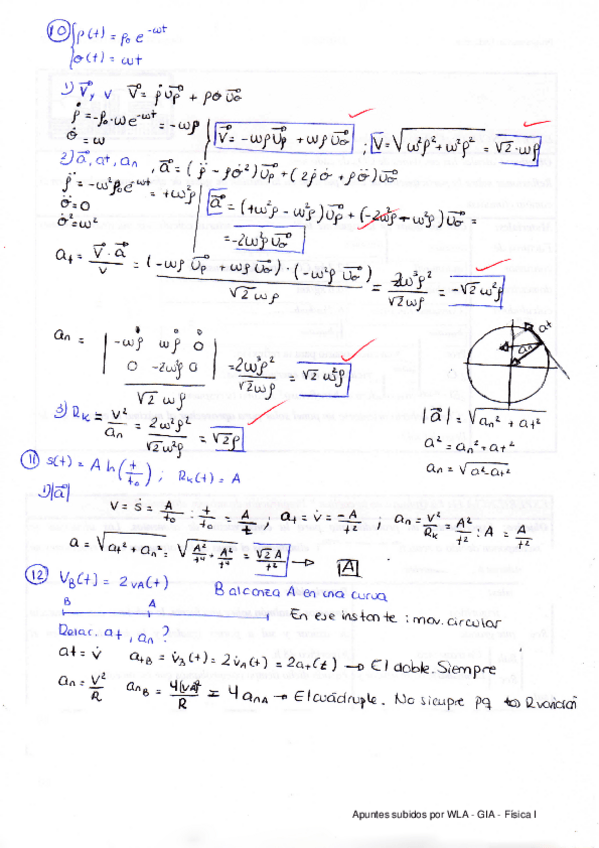 10) { ρ(t) = ρ₀ e^-ωt
θ(t) = ωt
1) v⃗, v   v⃗ = ρ̇ u⃗ρ + ρ θ̇ u⃗θ
ρ̇ = -ρ₀·ω e^-ωt = -ωρ
θ̇ = ω
v⃗ = -ωρ u⃗ρ + ωρ u⃗θ ; v = √(ω²ρ² + ω²ρ²) = √2·ωρ
2) a⃗, at, an , a⃗ = (ρ̈ - ρθ̇²) u⃗ρ + (2ρ̇θ̇ + ρθ̈) u⃗θ
ρ̈ = -ω²ρ₀e^-ωt = +ω²ρ
θ̈ = 0
θ̇² = ω²
a⃗ = (+ω²ρ - ω²ρ) u⃗ρ + (-2ω²ρ + ω²ρ) u⃗θ =
= -2ω²ρ u⃗θ
at = v⃗·a⃗ / v = (-ωρ u⃗ρ + ωρ u⃗θ)·(-ω²ρ u⃗θ) / √2 ωρ = 2ω³ρ² / √2ωρ = -√2 ω²ρ
an = | -ωρ ωρ 0 |
| 0 -2ωρ 0 | / √2 ωρ = 2ω³ρ² / √2ωρ = √2 ω²ρ
at
an
3) RK = v² / an = 2ω²ρ² / √2ω²ρ = √2ρ
|a⃗| = √(an² + at²)
a² = an² + at²
an = √(a²-at²)
11) s(t) = A ln(t/t₀) ; RK(t) = A
1) |a⃗|
v = ṡ = A/t₀ : t/t₀ = A/t ; at = v̇ = -A/t² ; an = v²/RK = A²/t² : A = A/t²
a = √(at² + an²) = √(A²/t⁴ + A²/t⁴) = √2 A / t² → A
12) VB(t) = 2VA(t)   B alcanza A en una curva
B A
En ese instante : mov. circular
Relac. at, an ?
at = v̇   atB = v̇B(t) = 2v̇A(t) = 2at(t) → El doble. Siempre
an = v²/R   anB = 4(vA)²/R = 4 anA → El cuádruple. No siempre pq
Apuntes subidos por WLA - GIA - Física I